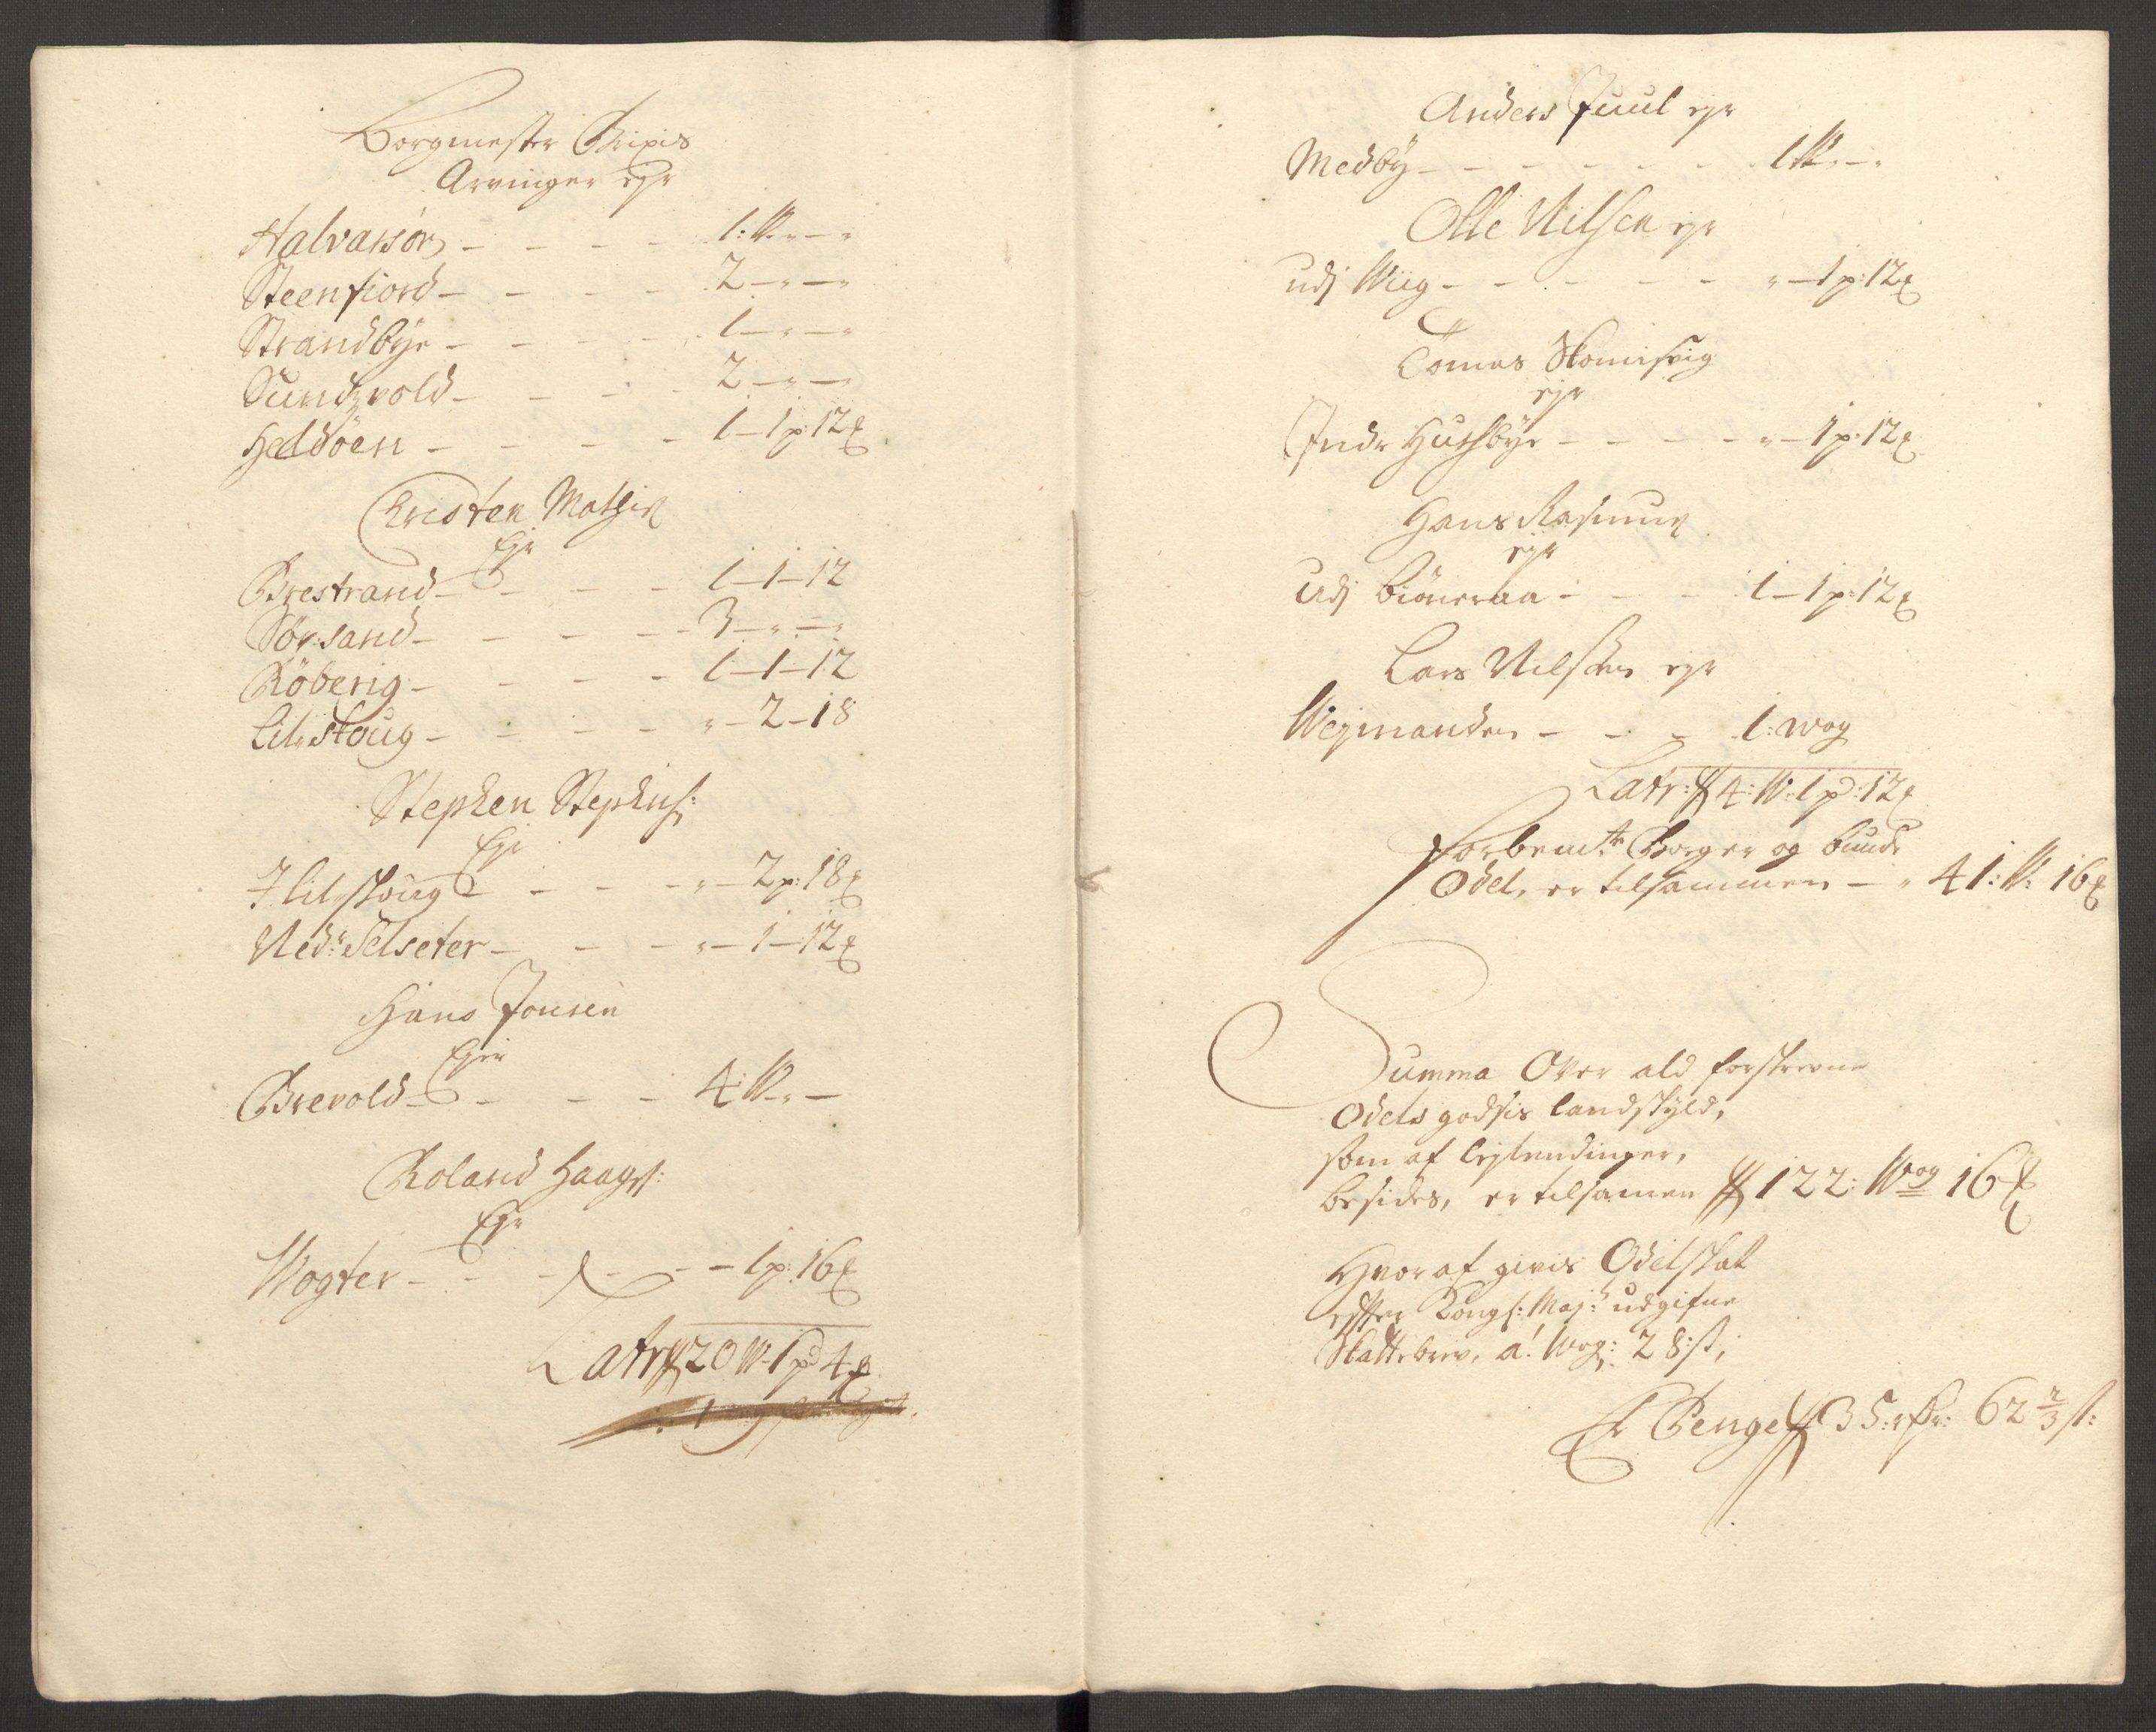 Borgmester Brixis
Arvinger ejr
Halvarsøn - - - - 1: W - " - "
Steenfiord - - - - 2 - " - "
Strandbye - - - - 1 - " - "
Sundzvold - - - - 2 - " - "
Heldøen - - - - 1 - 1 p: 12 ℔
Kristen
Ejr
Brestrand - - - - 1 - 1 - 12
Sør-sand - - - - 3 - " - "
Røberig - - - - 1 - 1 - 12
Lilscoug - - - - " - 2 - 18
Stephen Stephens:
Ejr
I Lilschoug - - - - " - 2 p: 18 ℔
Nedr: Selseter - - - " - 1 - 12 ℔
Hans Jonsen
Ejer
Brevold - - - - 4: W - " -
Roland Haags:
Ejr
Wogter - - - - - 1 p: 16 ℔
Latr 20 W - 1 pd 4 ℔
Anders Juul ejr
Medby - - - - - - 1 W - " - "
Olle Nilsen ejr
udj Wiig - - - - - " - 1 p: 12 ℔
Tomas Skomisvig
ejr
Indr Husbye - - - - " - 1 p: 12 ℔
Hans Rasmus
ejr
Udj biöneraa - - - 1 - 1 p: 12 ℔
Lars Nilsen ejr
Wegmanden - - - 1: wog
Latr: 4: W: 1 pd: 12 ℔
Forbemte Borger og bunde
Odel, er tilsammen - " 41: W: 16 ℔
Summa Over ald forskrevne
Odels godsis landskyld,
som af lejlendinger,
besides, er tilsamen 122: Wog 16 ℔
Hvor af givis Odelskat
effter Kongl: Maj: udgifne
Skattebrev, a! Wog: 28: s,
Er Penge 35: rdr: 62 2/3 s: